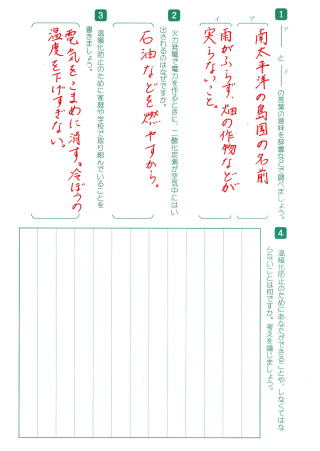 1 ア と イ の言葉の意味を辞書などで調べましょう。
ア
南太平洋の島国の名前
イ
雨がふらず、畑の作物などが
実らないこと。
2 火力発電で電力を作るときに、二酸化炭素が空気中にはい
出されるのはなぜですか。
石油などを燃やすから。
3 温暖化防止のために家庭や学校で取り組んでいることを
書きましょう。
電気をこまめに消す。冷ぼうの
温度を下げすぎない。
4 温暖化防止のためにあなたができることや、しなくてはな
らないことは何ですか。考えを論じましょう。